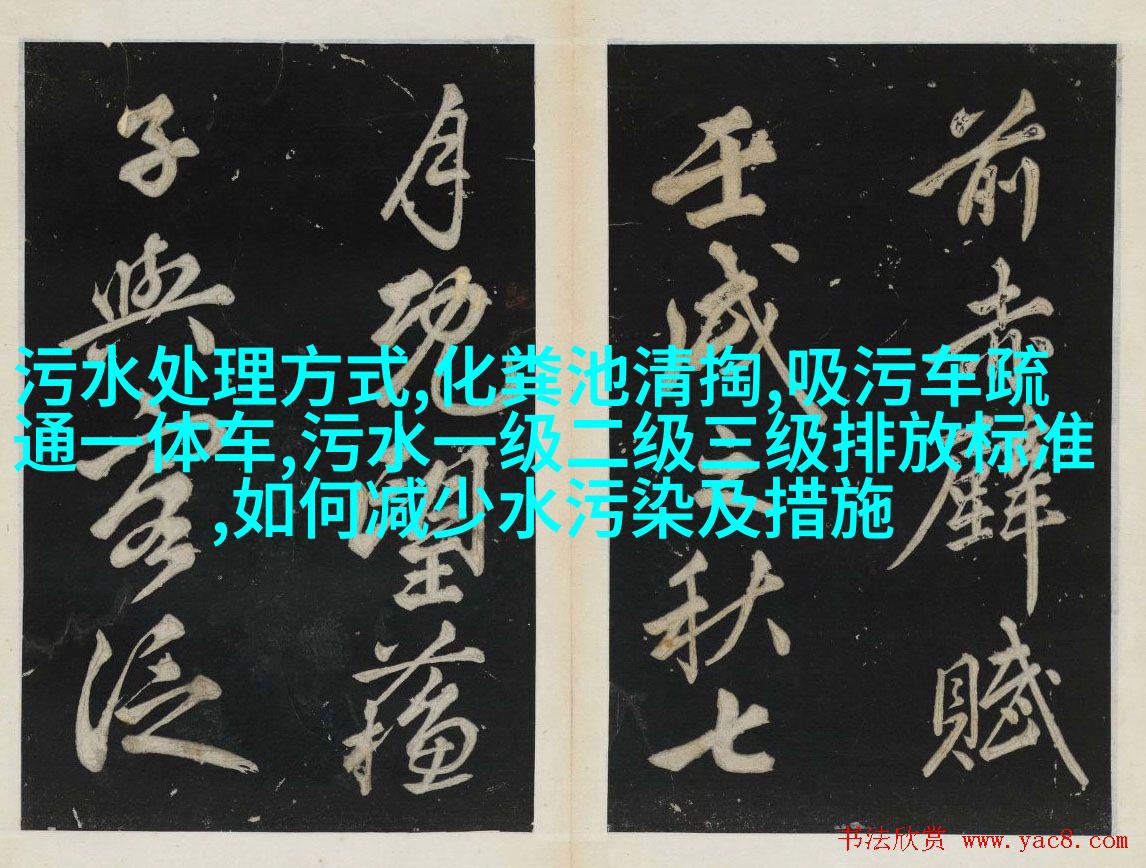 前赤壁賦
壬戌之秋七
月既望蘇
子與客泛
污水处理方式,化粪池清掏,吸污车疏
通一体车,污水一级二级三级排放标准
,如何减少水污染及措施
书法欣赏 www.yac8.com